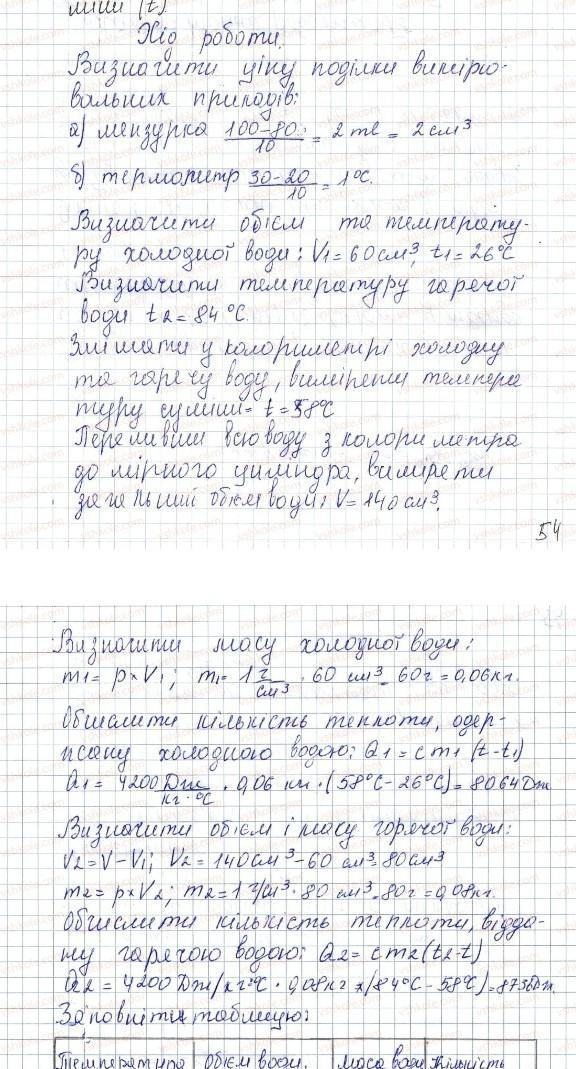 миші (t).
Хід роботи.
Визначити ціну поділки вимірю-
вальних приладів:
а) мензурка 100-80/10 = 2 ml = 2 см³
б) термометр 30-20/10 = 1°C.
Визначити обʼєм та температу-
ру холодної води: V1 = 60 см³, t1 = 26°C
Визначити температуру гарячої
води t2 = 84°C.
Змішати у колориметрі холодну
та гарячу воду, виміряти темпера
туру суміші - t = 58°C
Переливши всю воду з колориметра
до мірного циліндра, виміряти
загальний обʼєм води: V = 140 см³.
54
Визначити масу холодної води:
m1 = p × V1; m1 = 1 г/см³ · 60 см³ = 60 г = 0,06 кг.
Обчислити кількість теплоти, одер-
жану холодною водою: Q1 = cm1 (t - t1)
Q1 = 4200 Дж/кг·°C · 0,06 кг · (58°C - 26°C) = 8064 Дж
Визначити обʼєм і масу гарячої води:
V2 = V - V1; V2 = 140 см³ - 60 см³ = 80 см³
m2 = p × V2; m2 = 1 г/см³ · 80 см³ = 80 г = 0,08 кг.
Обчислити кількість теплоти, відда-
ну гарячою водою: Q2 = cm2 (t2 - t)
Q2 = 4200 Дж/кг·°C · 0,08 кг × (84°C - 58°C) = 8736 Дж.
Заповнити таблицю:
Температура обʼєм води. маса води Кількість